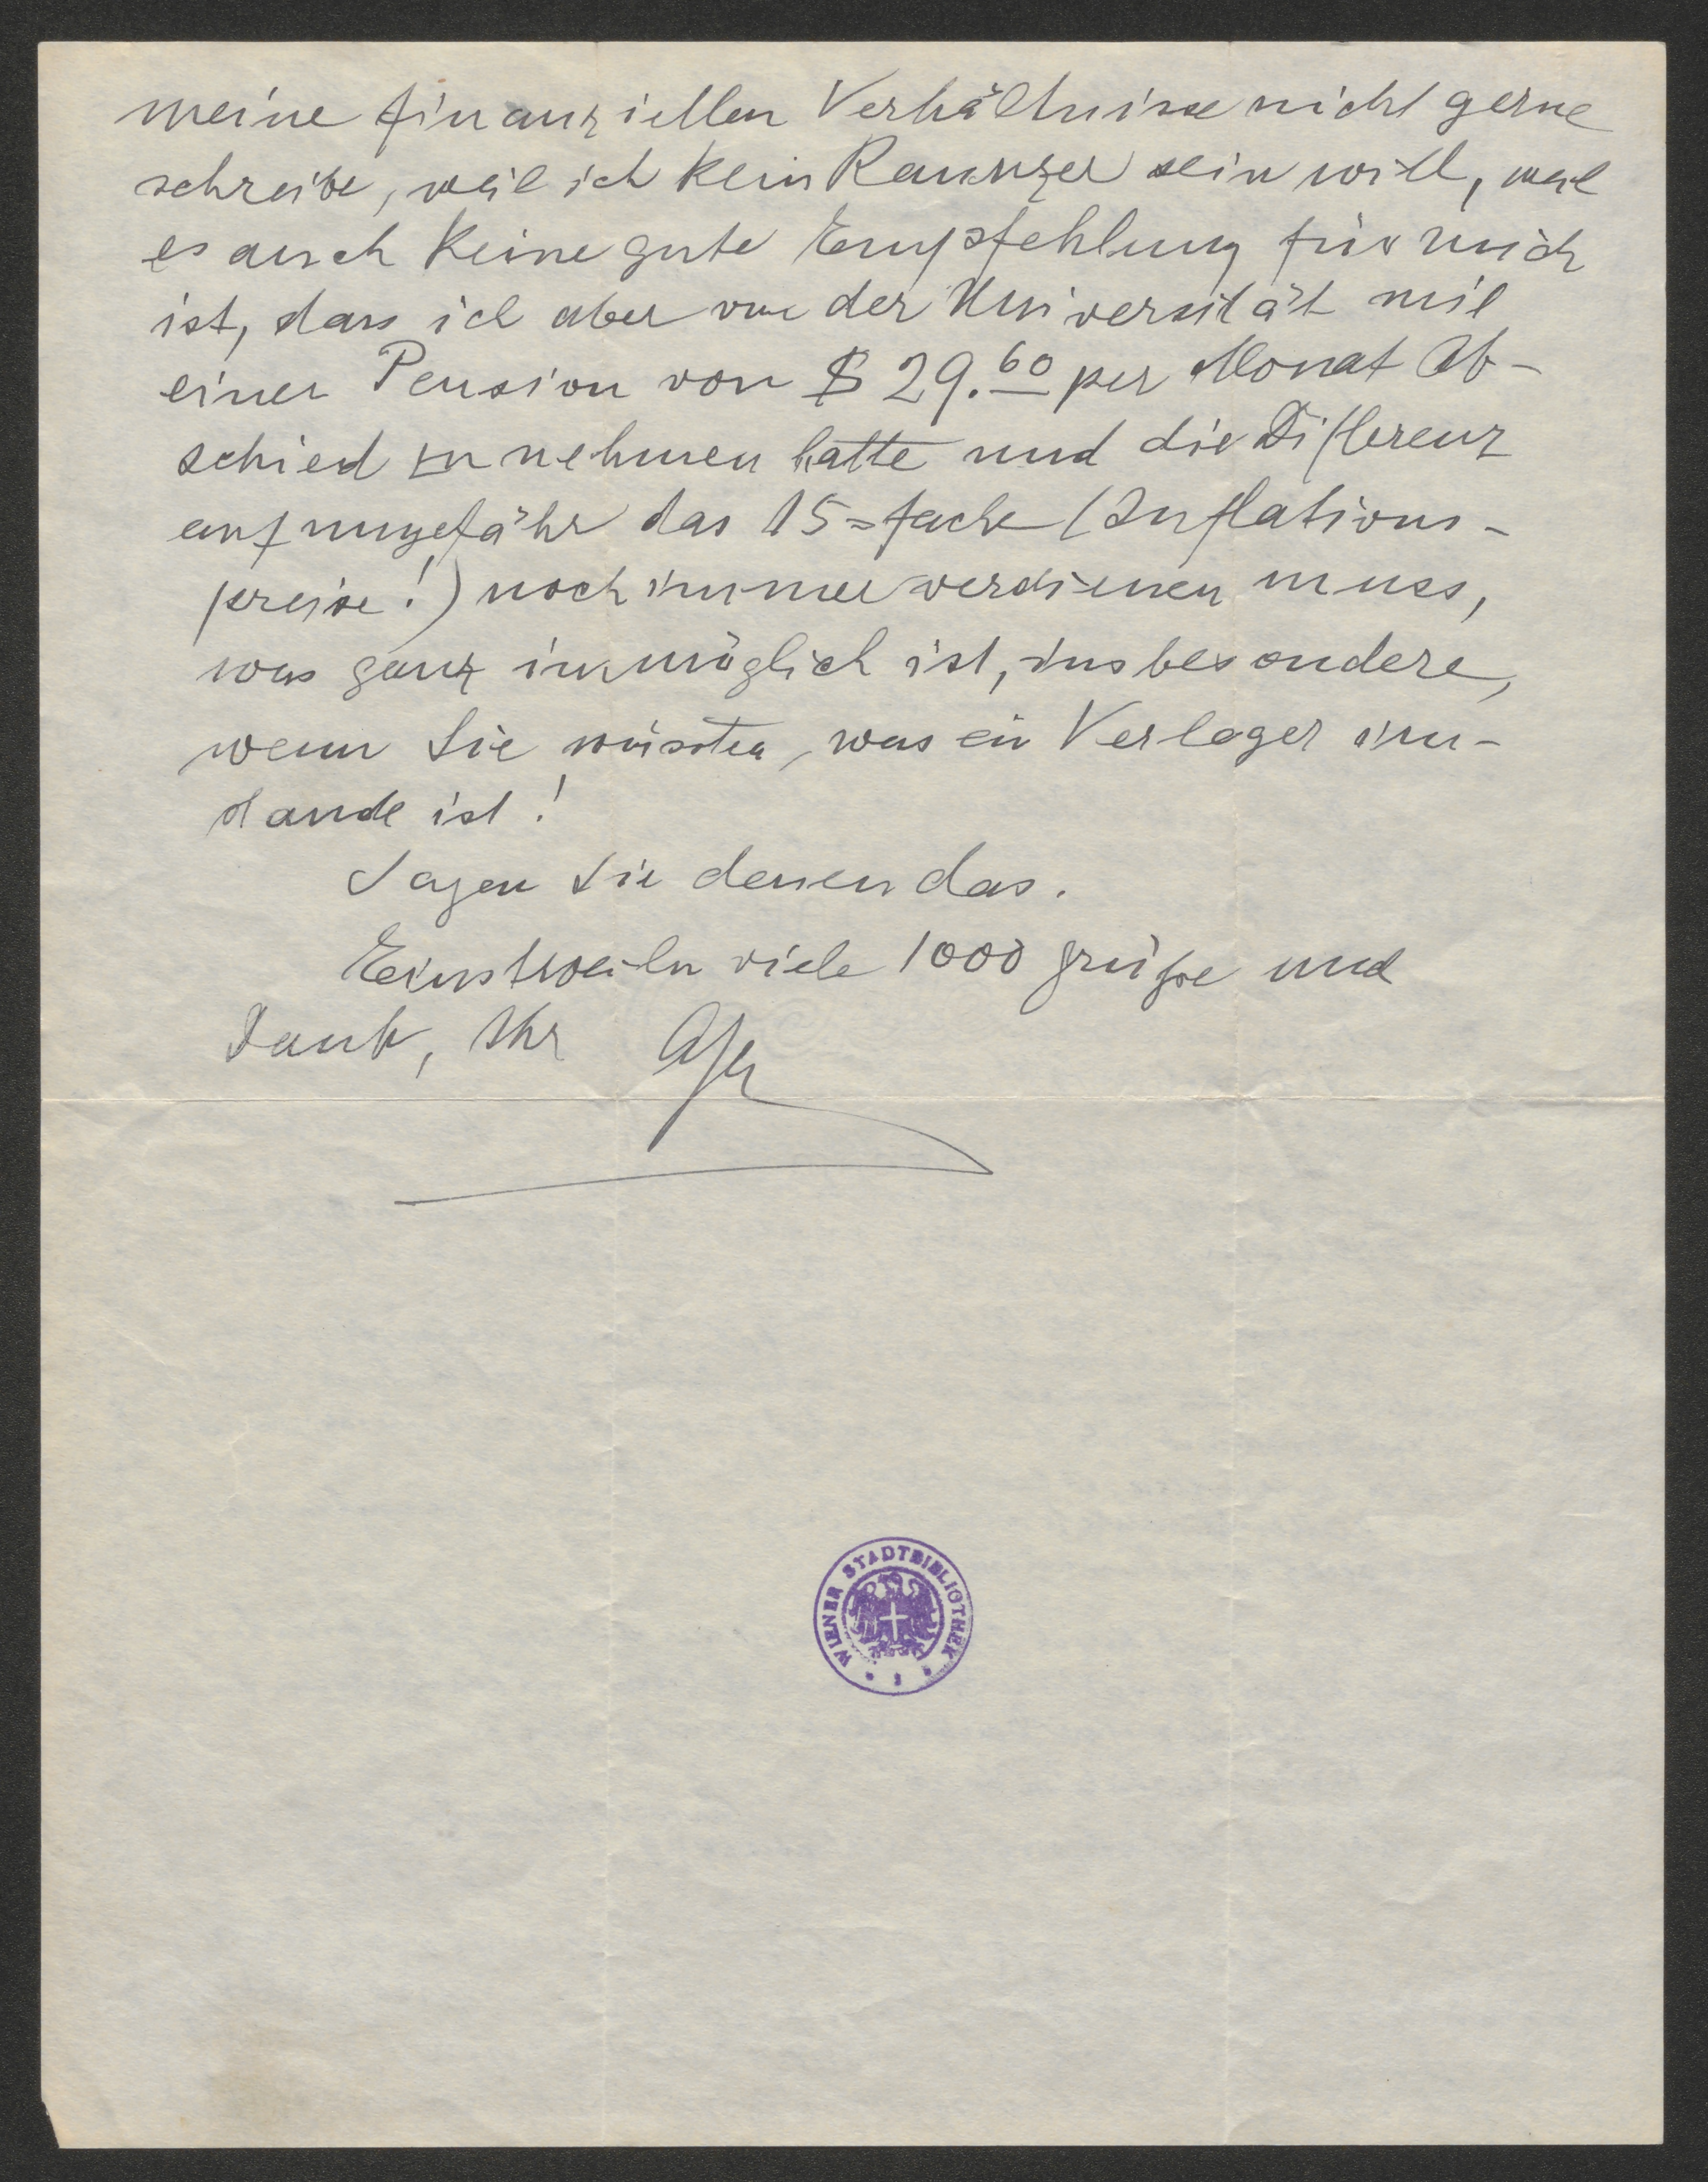 meine finanziellen Verhältnisse nicht gerne
schreibe, weil ich kein Raunzer sein will, weil
es auch keine gute Empfehlung für mich
ist, dass ich aber von der Universität mit
einer Pension von $ 29.60 per Monat Ab-
schied zu nehmen hatte und die Differenz
auf ungefähr das 15=fache (Inflations-
preise!) noch immer verdienen muss,
was ganz unmöglich ist, insbesondere,
wenn Sie wüssten, was ein Verleger im-
stande ist!
Sagen Sie denen das.
Einstweiln viele 1000 Grüße und
Dank, Ihr
WIENER STADTBIBLIOTHEK